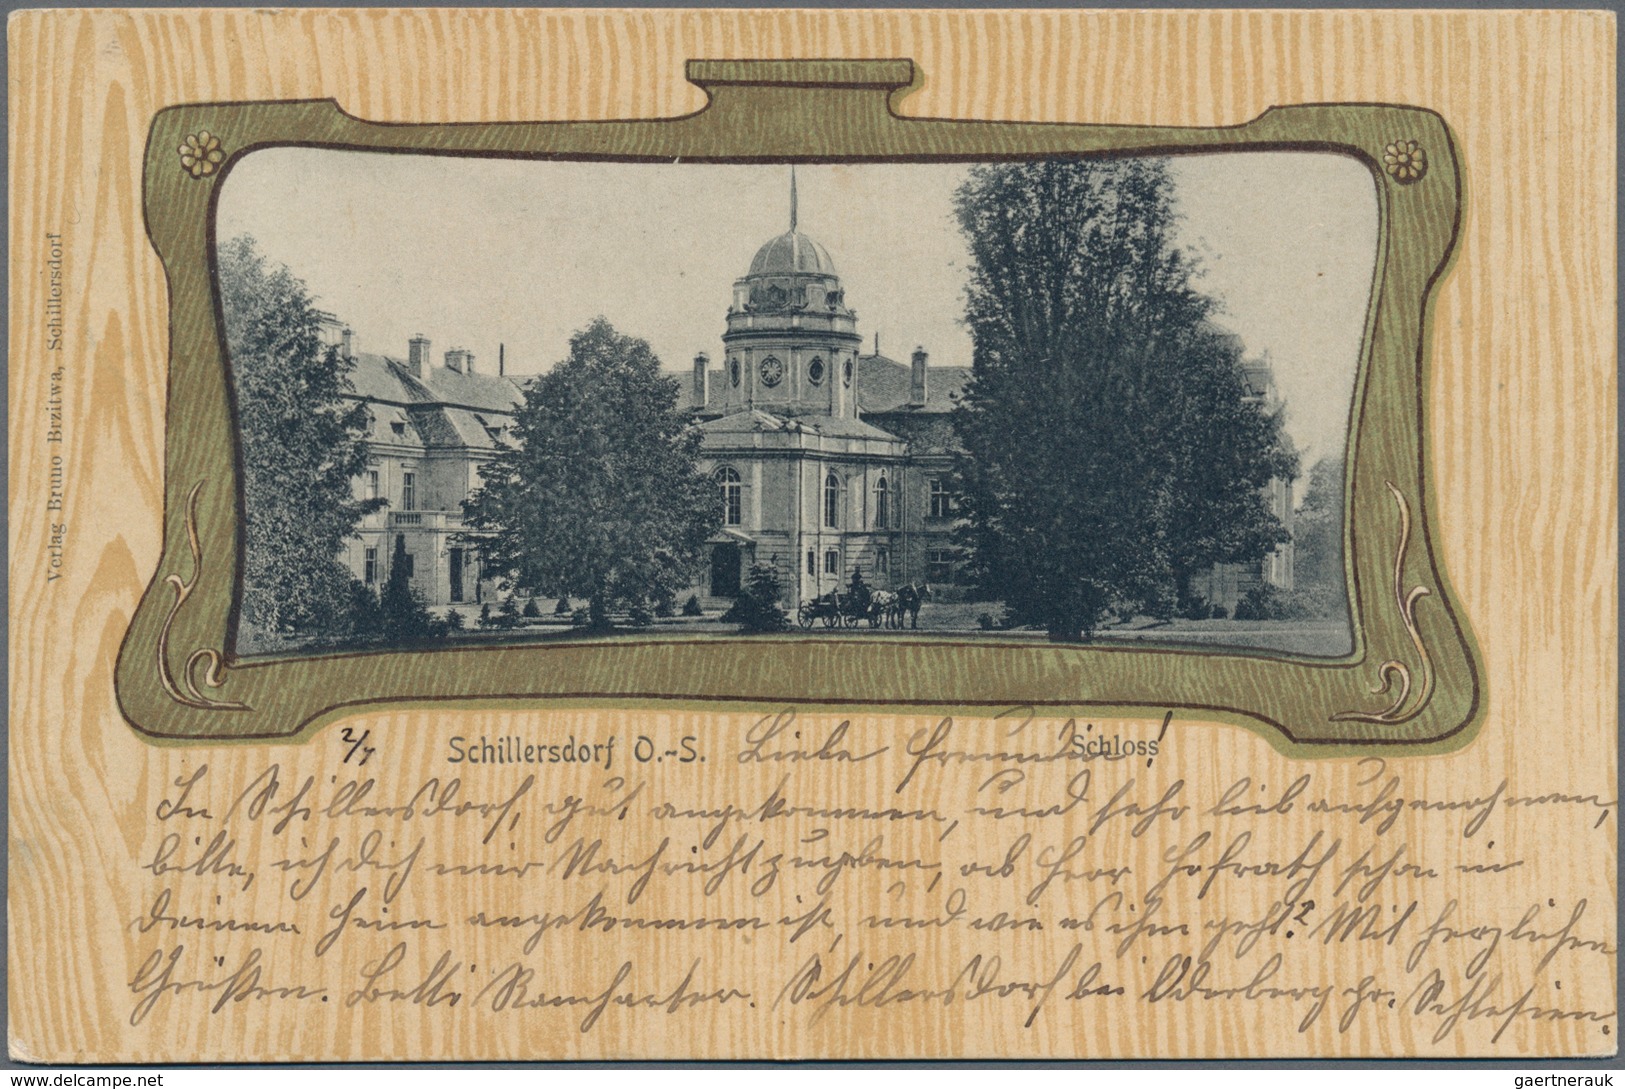 Verlag Bruno Brzitwa, Schillersdorf
2/7 Schillersdorf O.-S. Liebe Freundin! Schloss
In Schillersdorf, gut angekommen, und sehr lieb aufgenohmen,
bitte, ich dich mir Nachricht zugeben, ob Herr Hofrath schon in
deinem Heim angekommen ist, und wie es ihm geht? Mit herzlichen
Grüßen. Betti Ramharter. Schillersdorf bei Oderberg pr. Schlesien.
© www.delcampe.net
gaertnerauk